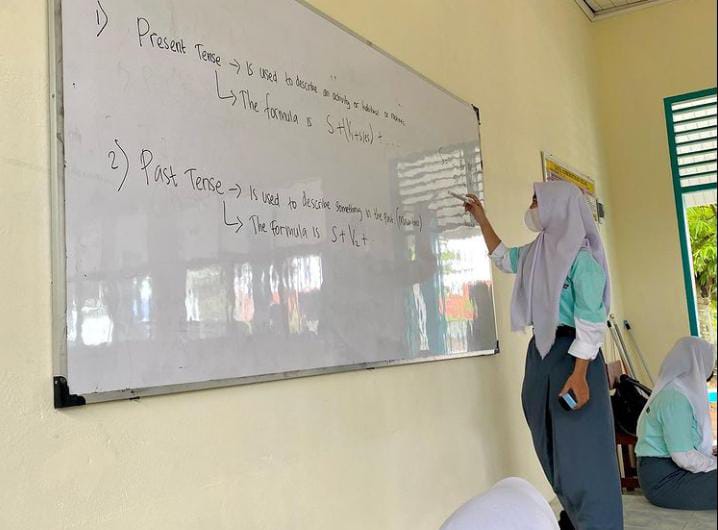 1) Present Tense → Is used to describe an activity or habitual or
↳ The formula is S+(V1+s/es) + ...
2) Past Tense → Is used to describe something in the past
↳ The formula is S + V2 +